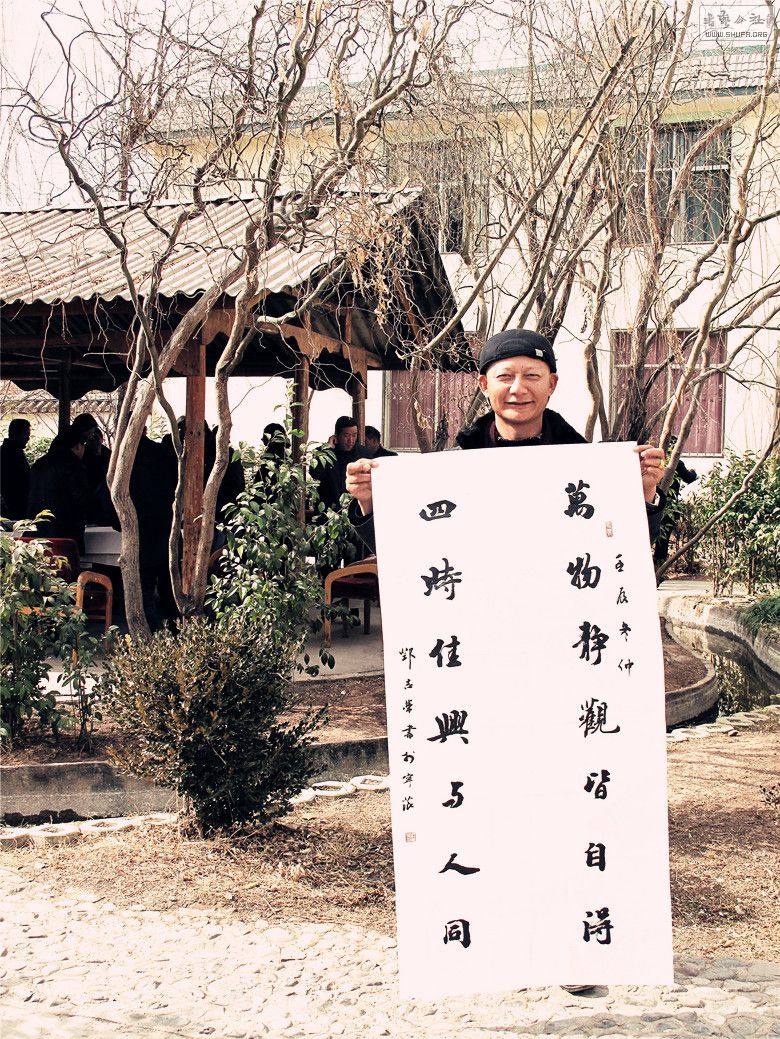 萬物靜觀皆自得
壬辰春仲
四時佳興与人同
鄧志學書於寧波
書法公社
WWW.SHUFA.ORG